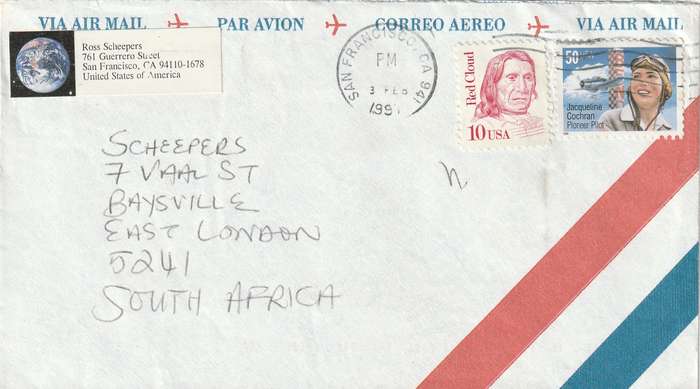 VIA AIR MAIL PAR AVION CORREO AEREO VIA AIR MAIL
Ross Scheepers
761 Guerrero Street
San Francisco, CA 94110-1678
United States of America
SAN FRANCISCO, CA 941
PM
3 FEB
Red Cloud
10 USA
50
Jacqueline
Cochran
Pioneer Pilot
SCHEEPERS
7 VAAL ST
BAYSVILLE
EAST LONDON
5241
SOUTH AFRICA